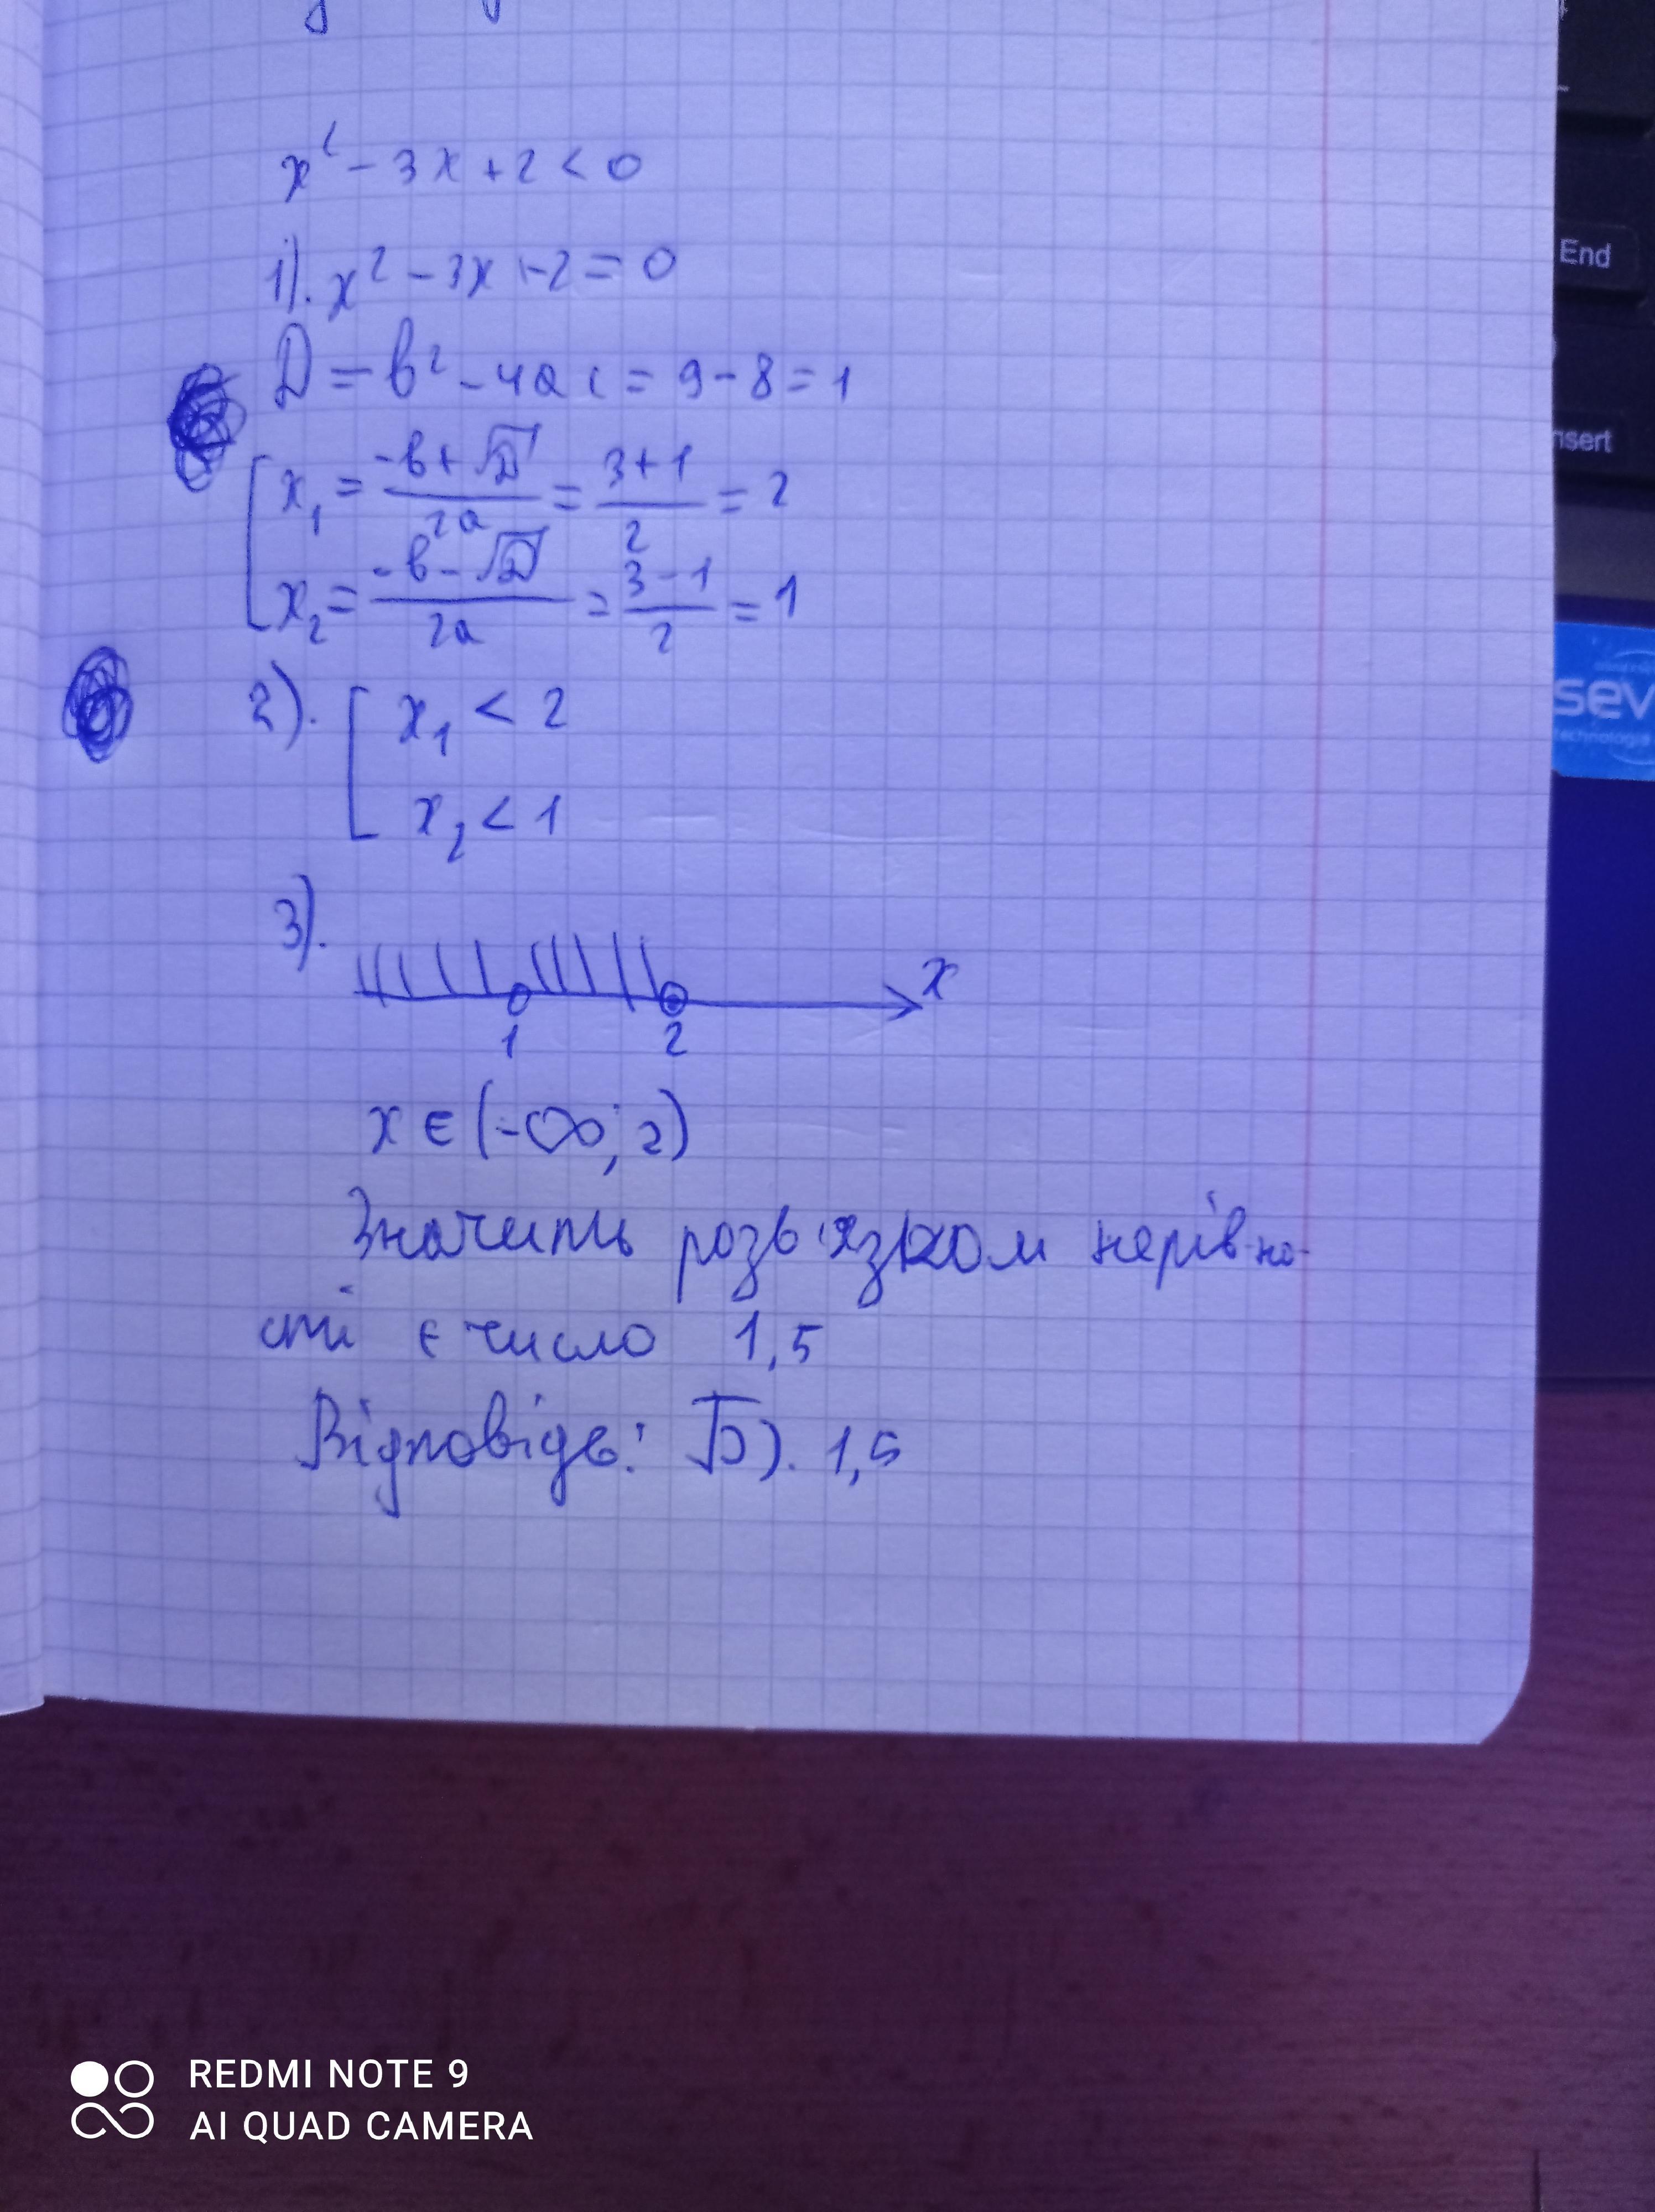 x² - 3x + 2 < 0
1). x² - 3x + 2 = 0
D = b² - 4ac = 9 - 8 = 1
x₁ = (-b + √D)/2a = (3+1)/2 = 2
x₂ = (-b - √D)/2a = (3-1)/2 = 1
2). [ x₁ < 2
x₂ < 1
3).
x
1 2
x ∈ (-∞; 2)
Значить розв'язком нерівно-
сті є число 1,5
Відповідь: Б). 1,5
End
nsert
sev
technologie
REDMI NOTE 9
AI QUAD CAMERA